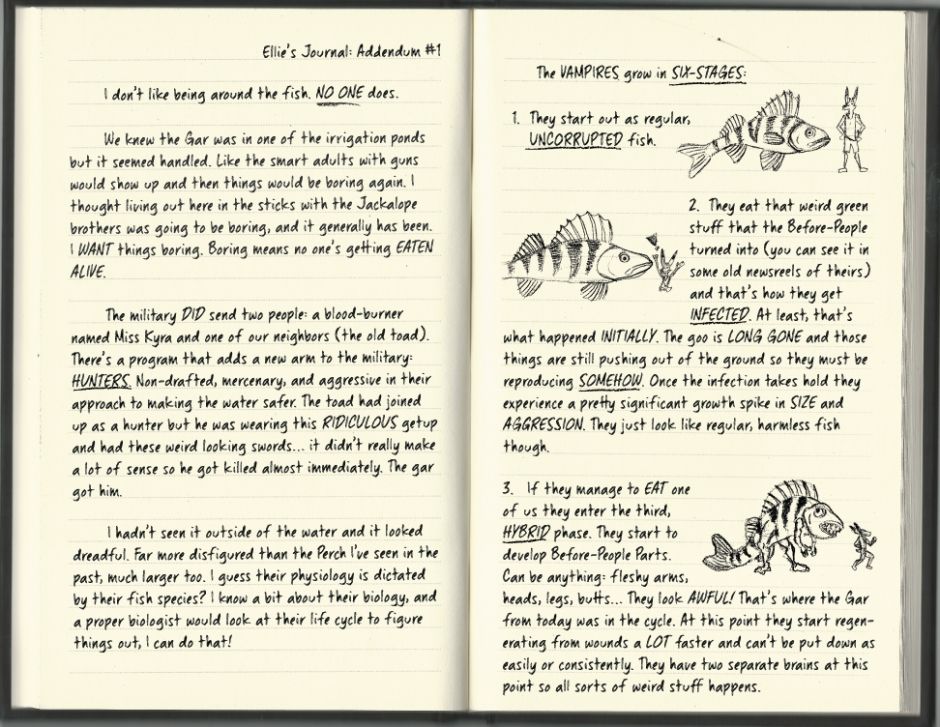 Ellie's Journal: Addendum #1
I don't like being around the fish. NO ONE does.
We knew the Gar was in one of the irrigation ponds
but it seemed handled. Like the smart adults with guns
would show up and then things would be boring again. I
thought living out here in the sticks with the Jackalope
brothers was going to be boring, and it generally has been.
I WANT things boring. Boring means no one's getting EATEN
ALIVE.
The military DID send two people: a blood-burner
named Miss Kyra and one of our neighbors (the old toad).
There's a program that adds a new arm to the military:
HUNTERS. Non-drafted, mercenary, and aggressive in their
approach to making the water safer. The toad had joined
up as a hunter but he was wearing this RIDICULOUS getup
and had these weird looking swords... it didn't really make
a lot of sense so he got killed almost immediately. The gar
got him.
I hadn't seen it outside of the water and it looked
dreadful. Far more disfigured than the Perch I've seen in the
past, much larger too. I guess their physiology is dictated
by their fish species? I know a bit about their biology, and
a proper biologist would look at their life cycle to figure
things out, I can do that!
The VAMPIRES grow in SIX-STAGES:
1. They start out as regular,
UNCORRUPTED fish.
2. They eat that weird green
stuff that the Before-People
turned into (you can see it in
some old newsreels of theirs)
and that's how they get
INFECTED. At least, that's
what happened INITIALLY. The goo is LONG GONE and those
things are still pushing out of the ground so they must be
reproducing SOMEHOW. Once the infection takes hold they
experience a pretty significant growth spike in SIZE and
AGGRESSION. They just look like regular, harmless fish
though.
3. If they manage to EAT one
of us they enter the third,
HYBRID phase. They start to
develop Before-People Parts.
Can be anything: fleshy arms,
heads, legs, butts... They look AWFUL! That's where the Gar
from today was in the cycle. At this point they start regen-
erating from wounds a LOT faster and can't be put down as
easily or consistently. They have two separate brains at this
point so all sorts of weird stuff happens.